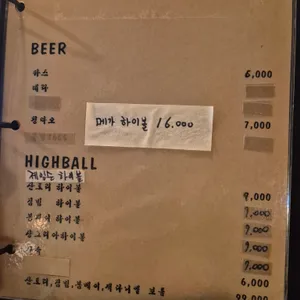 BEER
카스 6,000
테라
칭따오 7,000
메가 하이볼 16.000
HIGHBALL
제임슨 하이볼
산토리 하이볼 9,000
짐빔 하이볼 9,000
봄베이 하이볼 9,000
하이볼 9,000
9,000
산토리,짐빔,봄베이, 보틀 6,000
99,000